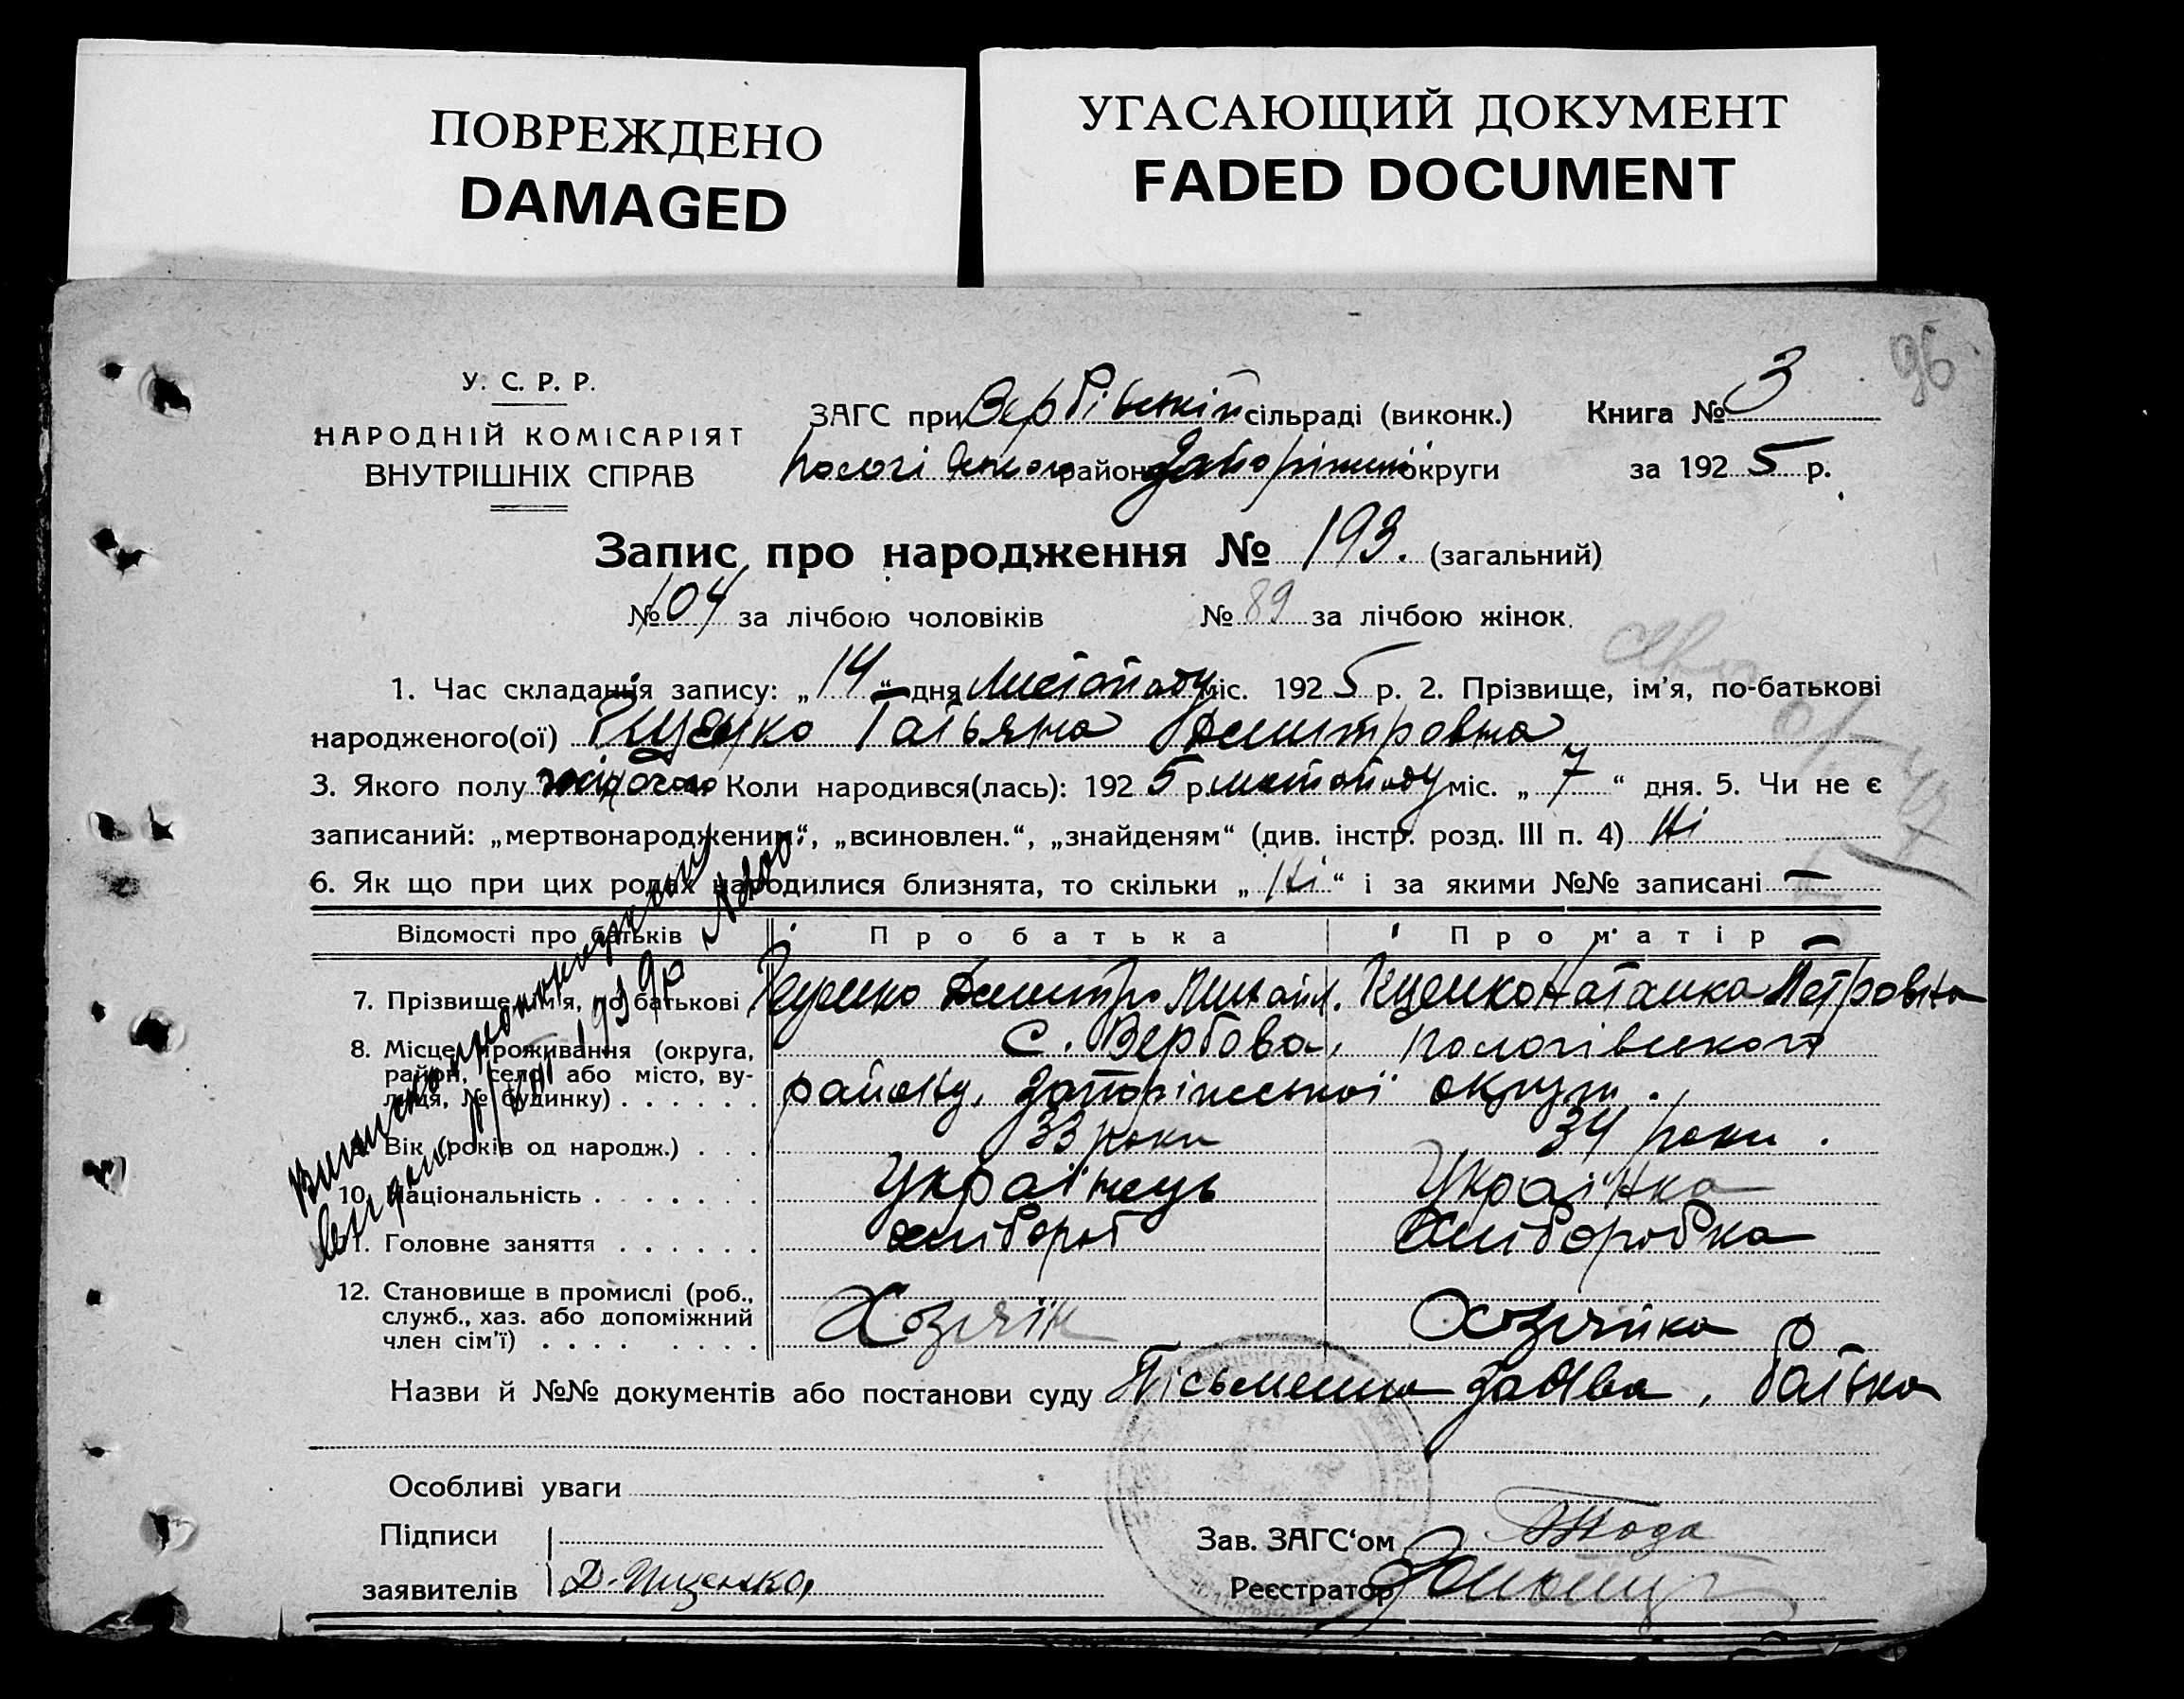 ПОВРЕЖДЕНО
DAMAGED
УГАСАЮЩИЙ ДОКУМЕНТ
FADED DOCUMENT
96
У. С. Р. Р.
НАРОДНІЙ КОМІСАРІЯТ
ВНУТРІШНІХ СПРАВ
ЗАГС при Вербівській сільраді (виконк.) Книга № 3
Пологівського району Запоріжської округи за 1925 р.
Запис про народження № 193. (загальний)
№ 104 за лічбою чоловіків № 89 за лічбою жінок.
1. Час складання запису: „14“ дня Листопаду міс. 1925 р. 2. Прізвище, ім'я, по-батькові
народженого(ої) Татьяна Дмитровна
3. Якого полу жіночого Коли народився(лась): 1925 р. листопаду міс. „7“ дня. 5. Чи не є
записаний: „мертвонародженим“, „всиновлен.“, „знайденям“ (див. інстр. розд. III п. 4) Ні
6. Як що при цих родах народилися близнята, то скільки „Ні“ і за якими №№ записані —
Відомості про батьків Про батька Про матір
7. Прізвище, ім'я, по батькові Дмитро Михайл. Наталка Петровна
8. Місце проживання (округа, район, село або місто, вулиця, № будинку) . . . . . . с. Вербова, Пологівського
району, Запоріжської округи.
Вік (років од народж.) . . . 33 роки 34 роки.
10. Національність . . . . . . Українець Українка
11. Головне заняття . . . . . . хлібороб Хліборобка
12. Становище в промислі (роб., служб., хаз. або допоміжний член сім'ї) . . . . . . . . Хозяїн Хозяйка
Назви й №№ документів або постанови суду Пісьменна заява, батька
Особливі уваги
Підписи
заявителів Д. Пщенко,
Зав. ЗАГС'ом
Реєстратор